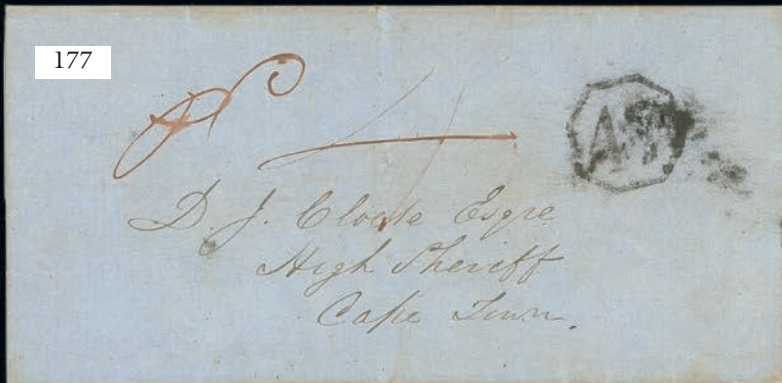 177
P 4
D J. Cloete Esqre
High Sheriff
Cape Town.